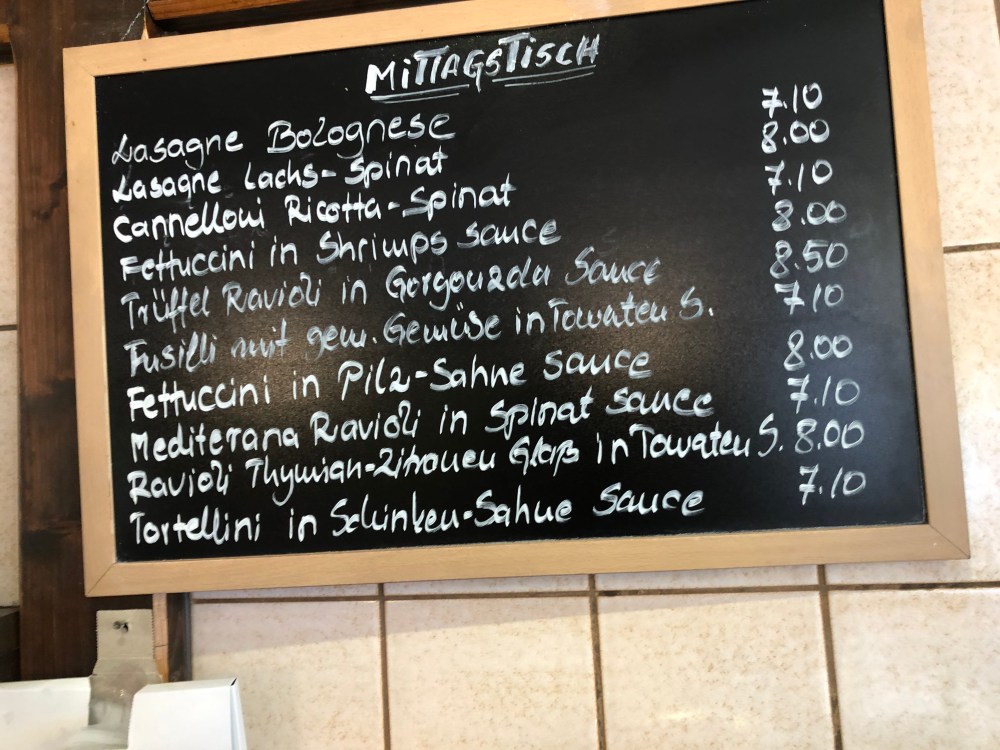 MITTAGSTISCH
Lasagne Bolognese 7.10
Lasagne Lachs-Spinat 8.00
Cannelloni Ricotta-Spinat 7.10
Fettuccini in Shrimps sauce 8.00
Trüffel Ravioli in Gorgonzola Sauce 8.50
Fusilli mit gem. Gemüse in Tomaten S. 7.10
Fettuccini in Pilz-Sahne Sauce 8.00
Mediterana Ravioli in Spinat sauce 7.10
Ravioli Thymian-Zitronen in Tomaten S. 8.00
Tortellini in Schinken-Sahne Sauce 7.10